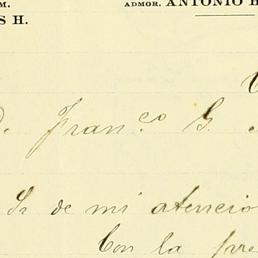 M. ADMOR. ANTONIO H
S H.
D. Fran.co G.
Sr de mi atencio
Con la pre